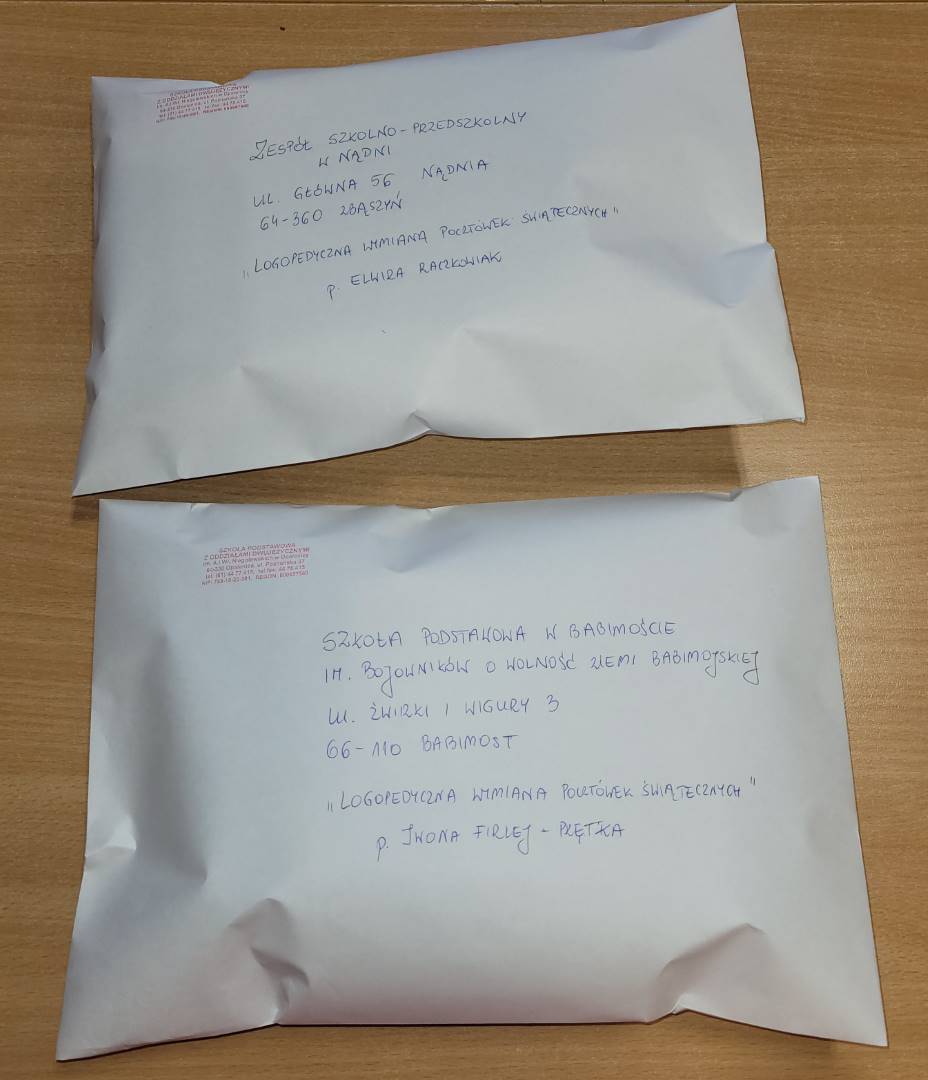 SZKOŁA PODSTAWOWA
Z ODDZIAŁAMI DWUJĘZYCZNYMI
ZESPÓŁ SZKOLNO-PRZEDSZKOLNY
W NĄDNI
UL. GŁÓWNA 56 NĄDNIA
64-360 ZBĄSZYŃ
„LOGOPEDYCZNA WYMIANA POCZTÓWEK ŚWIĄTECZNYCH"
p. ELWIRA RACZKOWIAK
SZKOŁA PODSTAWOWA
Z ODDZIAŁAMI DWUJĘZYCZNYMI
im. A.i Wł. Niegolewskich w Opalenicy
64-330 Opalenica, ul. Poznańska 37
tel. (61) 44 77 415, tel./fax. 44 76 415
SZKOŁA PODSTAWOWA W BABIMOŚCIE
IM. BOJOWNIKÓW O WOLNOŚĆ ZIEMI BABIMOJSKIEJ
UL. ŻWIRKI I WIGURY 3
66-110 BABIMOST
„LOGOPEDYCZNA WYMIANA POCZTÓWEK ŚWIĄTECZNYCH"
p. IWONA FIRLEJ-PŁĘTKA